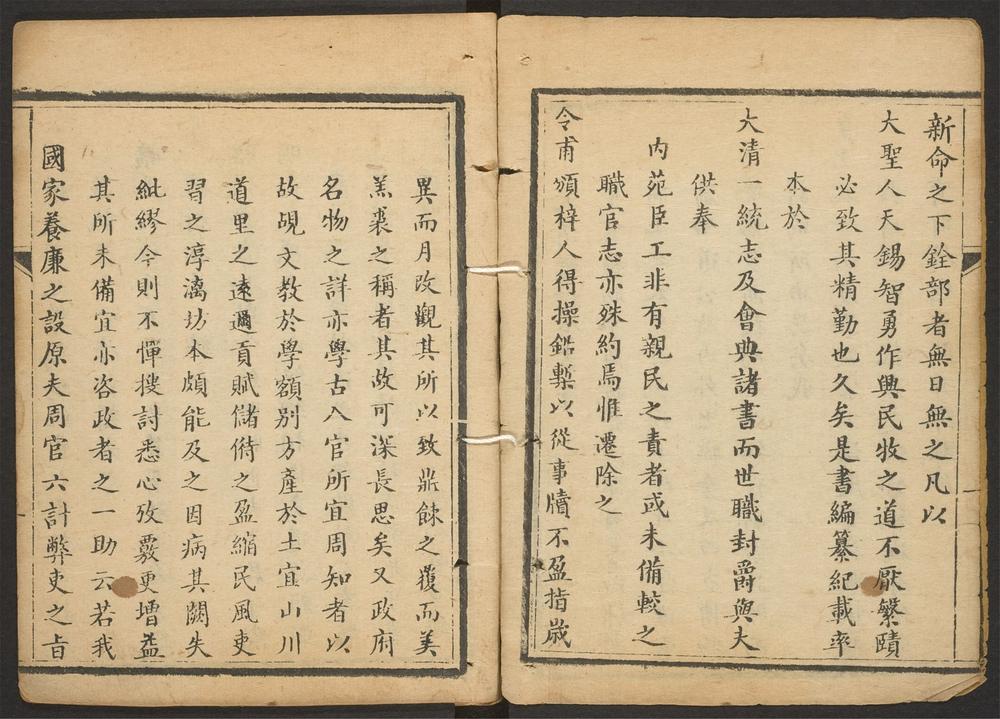 新命之下銓部者無日無之凡以
大聖人天錫智勇作興民牧之道不厭繁賾
必致其精勤也久矣是書編纂紀載率
本於
大清一統志及會典諸書而世職封爵與夫
供奉
內苑臣工非有親民之責者或未備較之
職官志亦殊約焉惟遷除之
令甫頒梓人得操鉛槧以從事牘不盈指歲
異而月改觀其所以致鼎餗之覆而美
羔裘之稱者其故可深長思矣又政府
名物之詳亦學古入官所宜周知者以
故覘文教於學額別方產於土宜山川
道里之遠邇貢賦儲偫之盈縮民風吏
習之淳漓坊本頗能及之因病其闕失
紕繆今則不憚搜討悉心攷覈更增益
其所未備宜亦咨政者之一助云若我
國家養廉之設原夫周官六計弊吏之旨